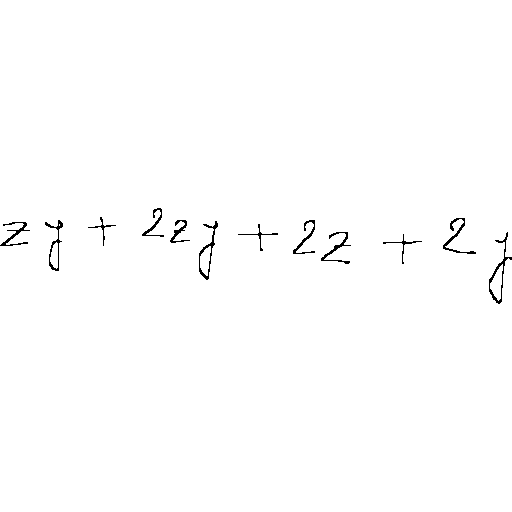 zy + 2zy + 2z + 2y